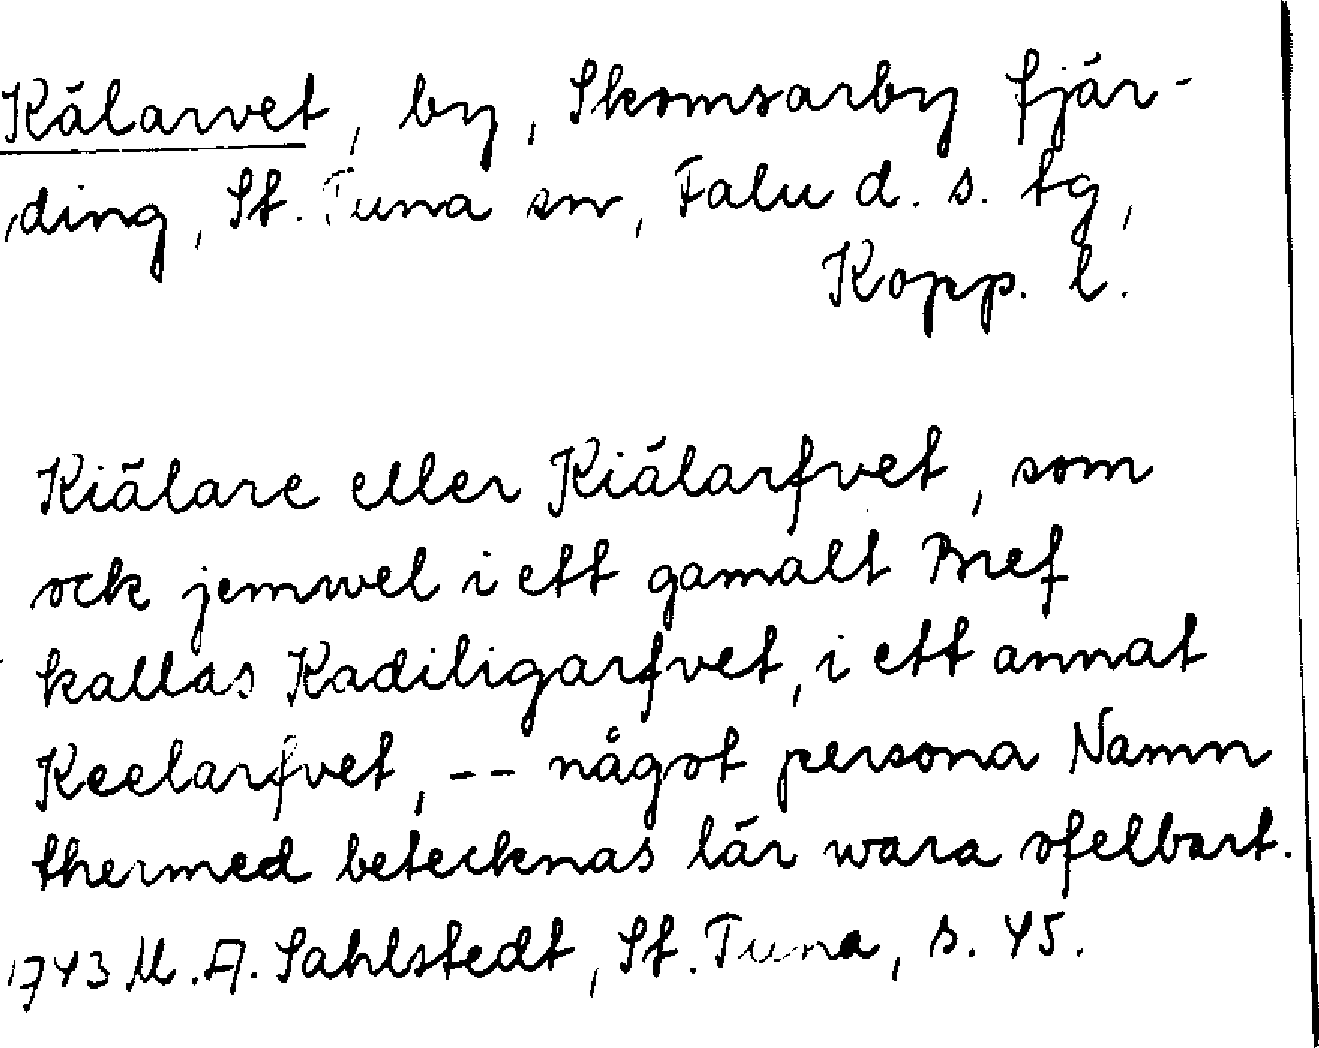 Kälarvet, by, Skomsarby fjär-
ding, St. Tuna sn, Falu d. s. tg,
Kopp. l.
Kiälare eller Kiälarfvet, som
ock jemwel i ett gamalt Bref
kallas Kadiligarfvet, i ett annat
Keelarfvet, -- något persona Namn
thermed betecknas lär wara ofelbart.
1743 M. A. Sahlstedt, St. Tuna, s. 45.